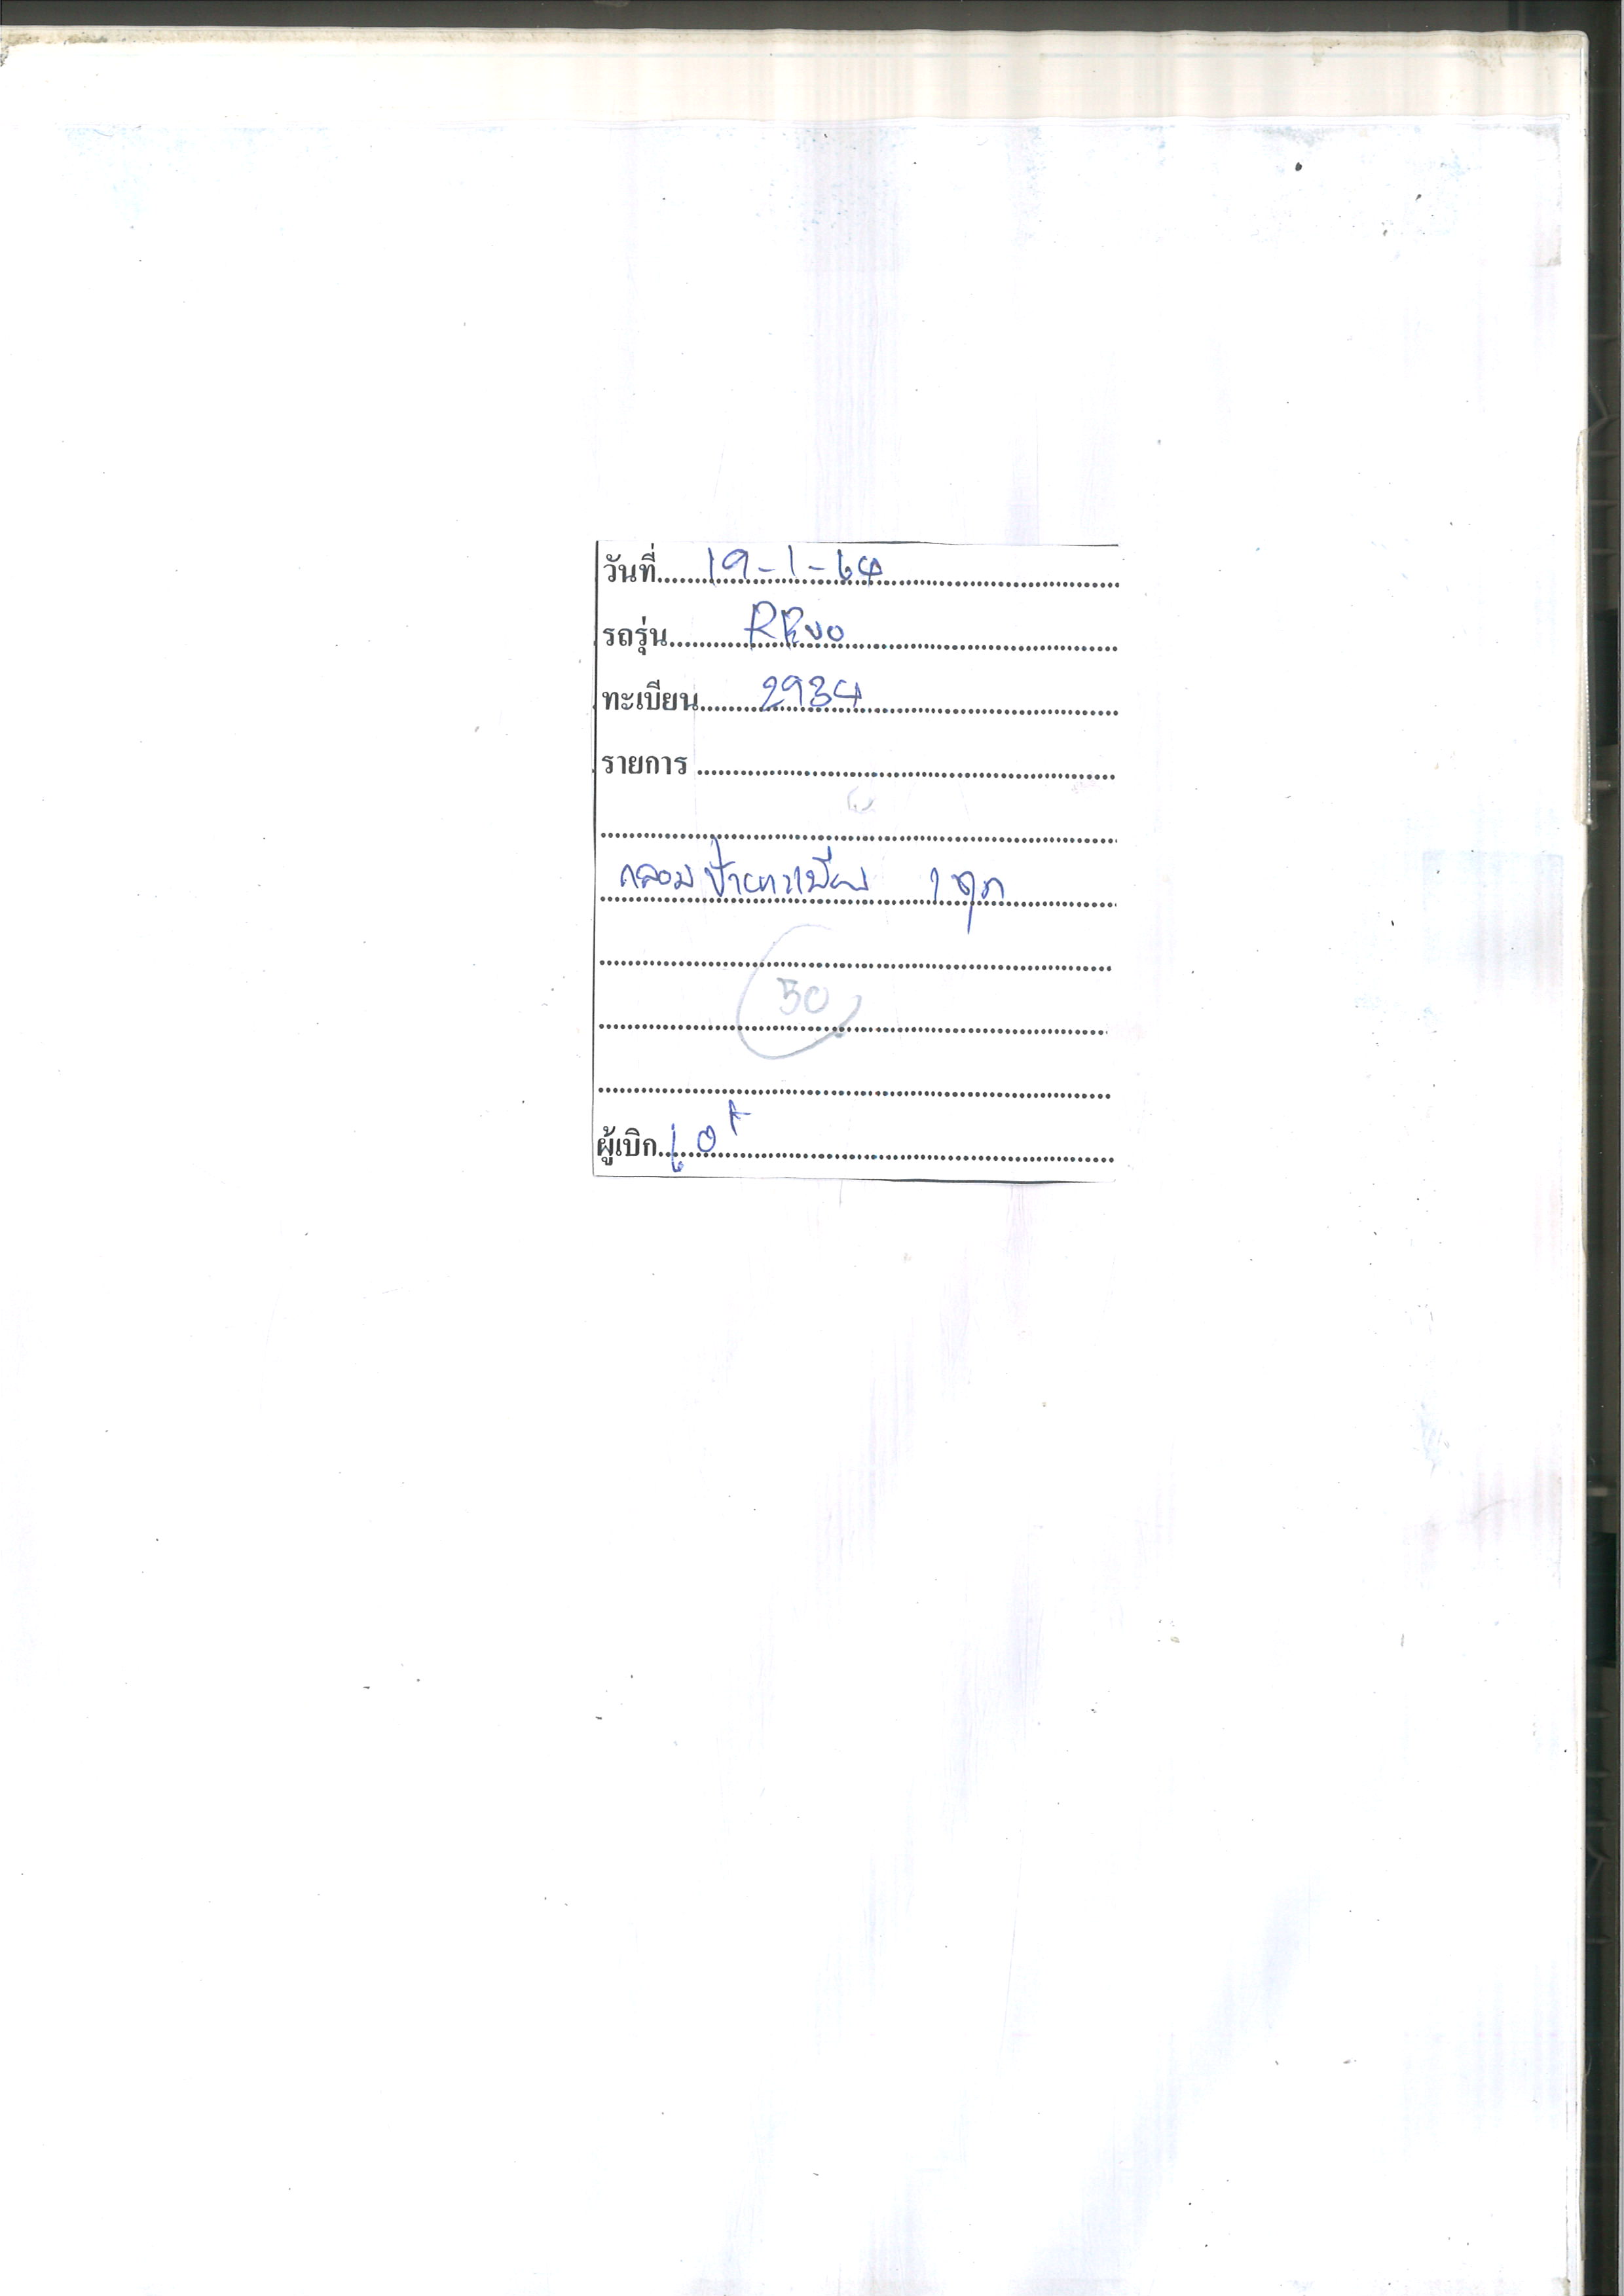 วันที่ 19-1-64
รถรุ่น REvo
ทะเบียน 2934
รายการ
กรอบป้ายทะเบียน 1 ชุด
50
ผู้เบิก